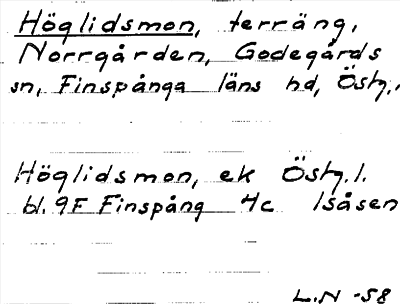 Höglidsmon, terräng,
Norrgården, Godegårds
sn, Finspånga läns hd, Östg.,
Höglidsmon, ek Östg.l.
bl. 9F Finspång 4c Isåsen
L.N -58